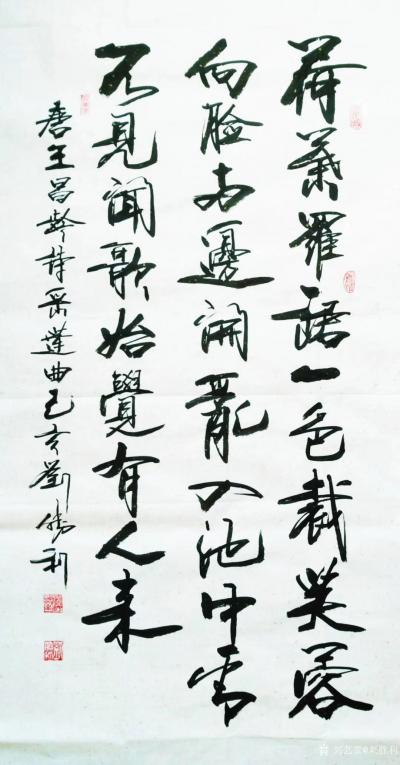 荷葉羅裙一色裁芙蓉
向臉兩邊開亂入池中看
不見聞歌始覺有人来
唐王昌齡詩采蓮曲己亥劉勝利
@刘胜利